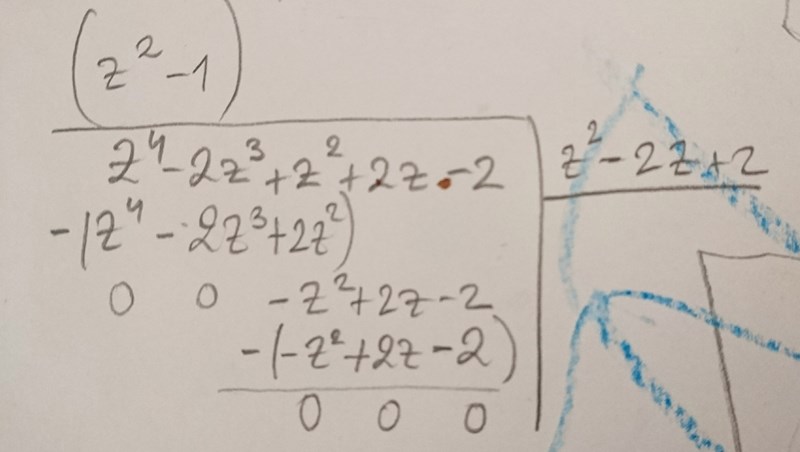 (z² -1)
z⁴-2z³+z²+2z-2 z²-2z+2
-(z⁴-2z³+2z²)
0 0 -z²+2z-2
-(-z²+2z-2)
0 0 0